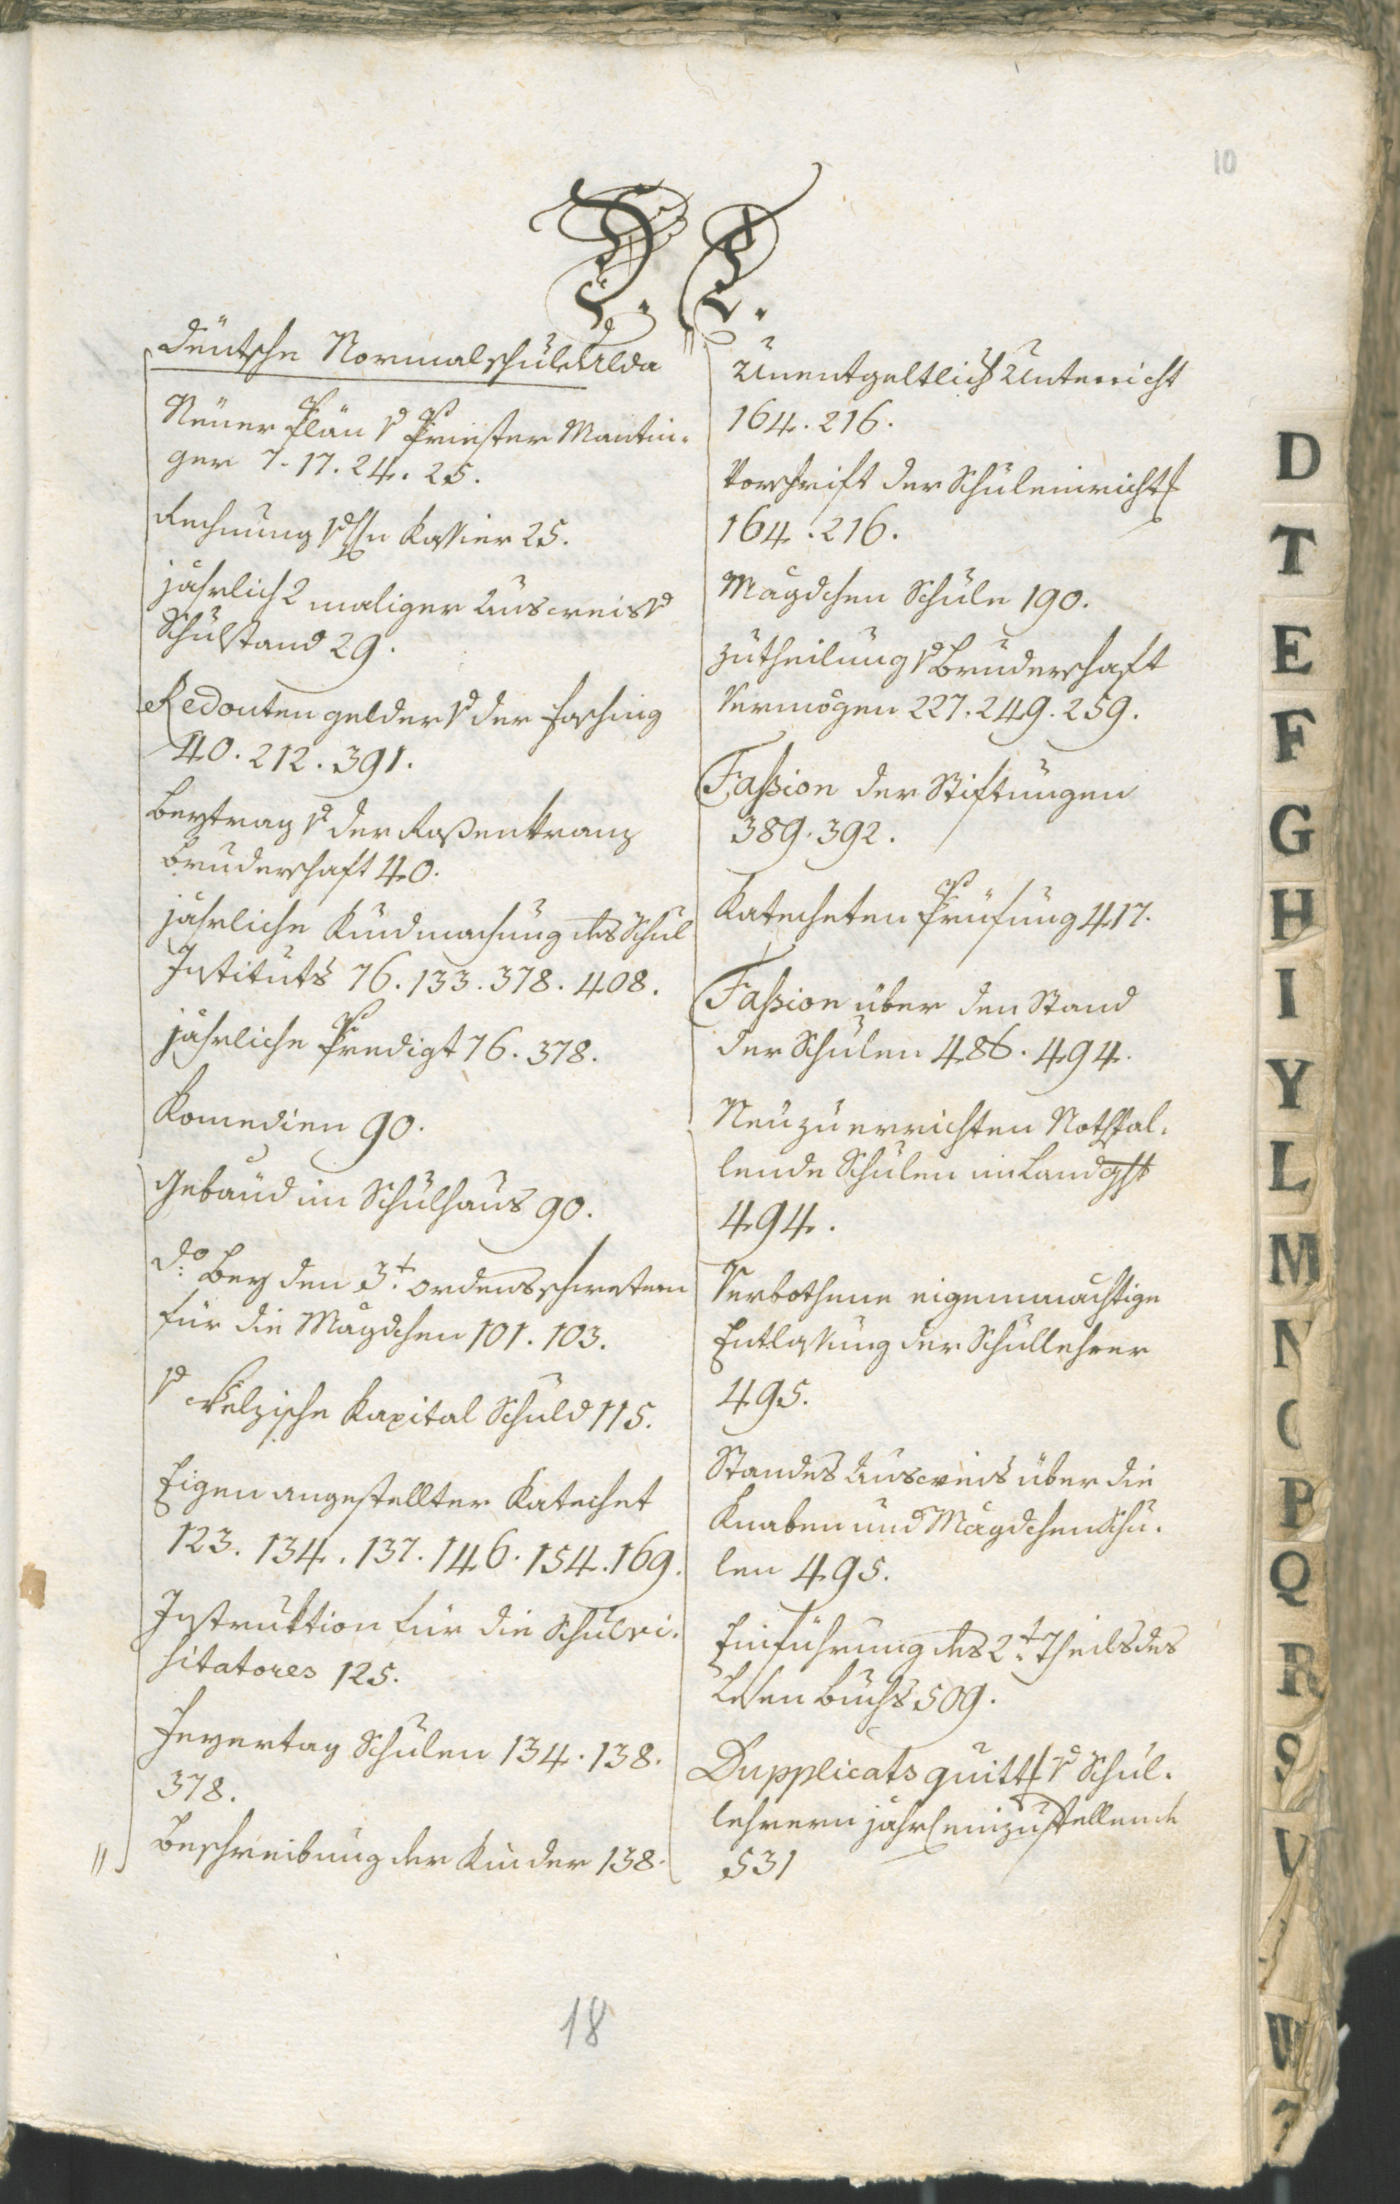 10
D. T.
Deütsche Normalschüle Alda
Neüer Plan Priester Mantin-
ger 7. 17. 24. 25.
Rechnüng Kassier 25.
jährlich 2 maliger Aüsweis
Schülstand 29.
Redouten gelder der Fasching
40. 212. 391.
Beytrag der Rosenkranz
Brüderschaft 40.
jährliche Kündmachüng des Schül
Institüts 76. 133. 378. 408.
jährliche Predigt 76. 378.
Komedien 90.
Gebaüd im Schülhaüs 90.
do: bey den 3.t ordensschwestern
für die Mägdchen 101. 103.
Kapital Schüld 115.
Eigen angestellter Katechet
123. 134. 137. 146. 154. 169.
Instrüktion für die Schülvi-
sitatores 125.
Feyertag Schülen 134. 138.
378.
Beschreibüng der Kinder 138.
Ünentgeltlich Ünterricht
164. 216.
Vorschrift der Schüleinricht
164. 216.
Mägdchen Schüle 190.
Zütheilüng Brüderschaft
Vermögen 227. 249. 259.
Faßion der Stiftüngen
389. 392.
Katecheten Prüfüng 417.
Faßion über den Stand
der Schülen 486. 494.
Neü zü errichten Nothfal-
lende Schülen im Landght
494.
Verbothene eigenmächtige
Entlassüng der Schüllehrer
495.
Standes Aüsweis über die
Knaben ünd Mägdchen Schü-
len 495.
Einführüng des 2.t Theils des
Lesen büchs 509.
Dupplicats quitt Schül-
lehrern jährl einzüstellende
531
18
D
T
E
F
G
H
I
Y
L
M
N
P
Q
R
S
V
W